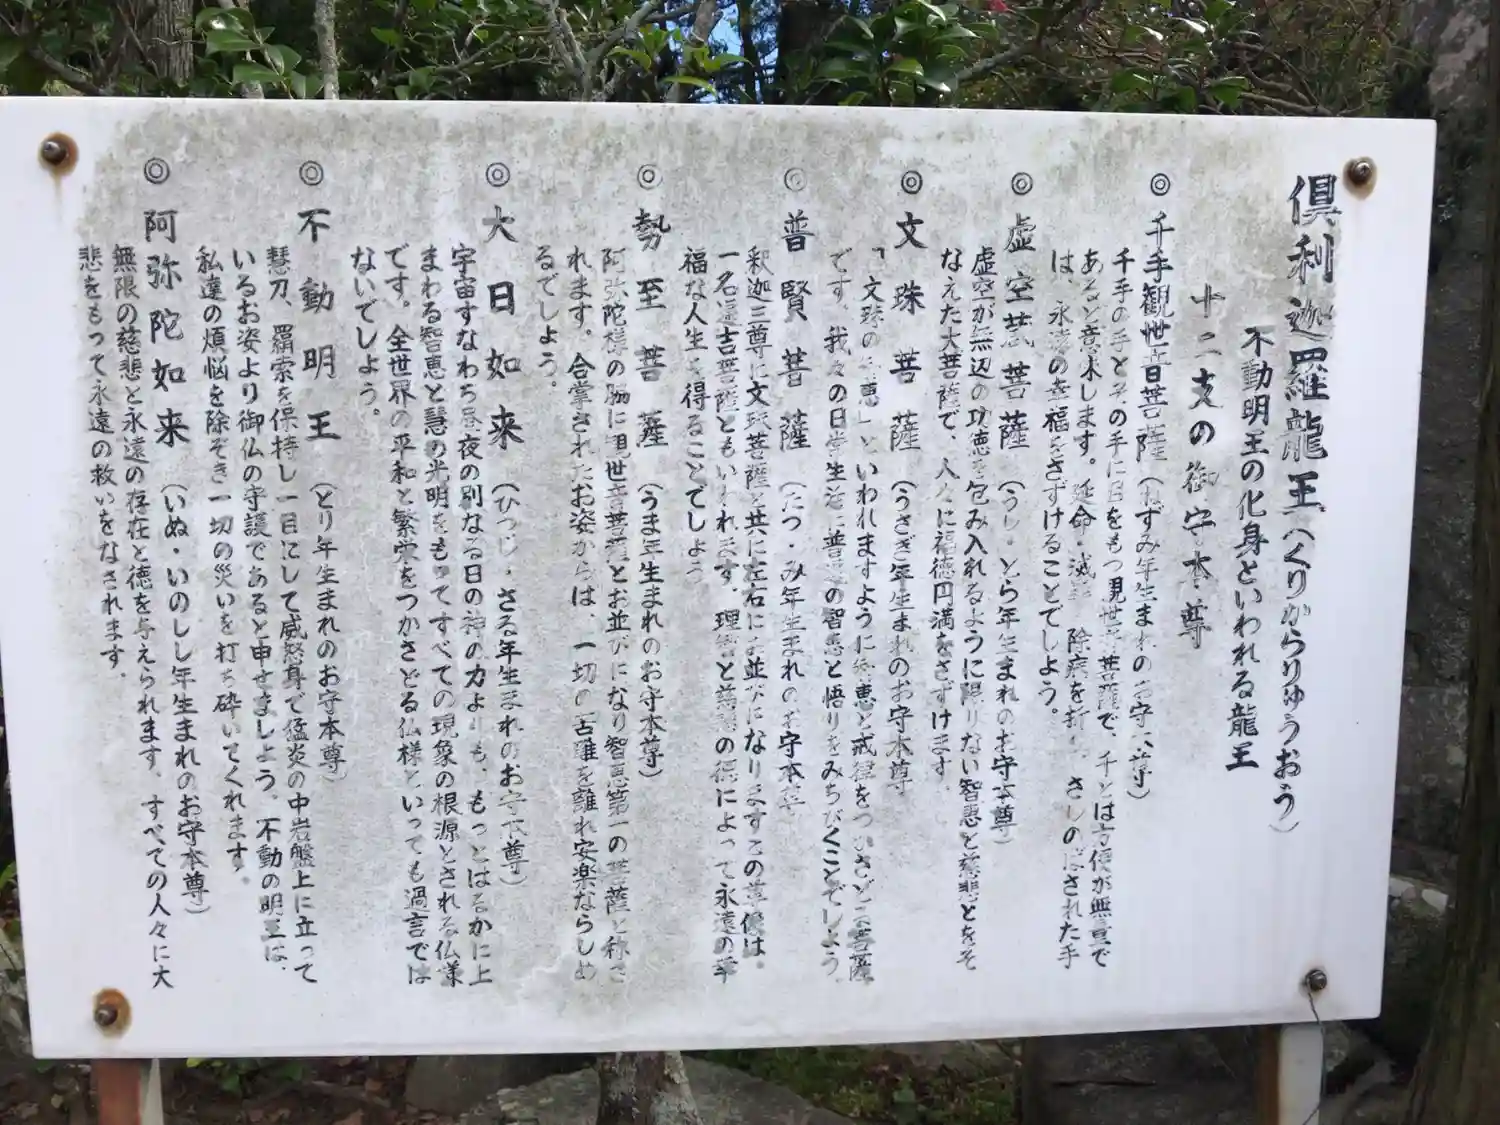 倶利迦羅龍王(くりからりゅうおう)
不動明王の化身といわれる龍王
十二支の御守本尊
◎千手観世音菩薩(ねずみ年生まれのお守本尊)
千手の手とその手に目をもつ観世音菩薩で、千とは方便が無量で
あると意味します。延命・滅罪・除病を祈り、さしのばされた手
は、永遠の幸福をさずけることでしょう。
◎虚空蔵菩薩(うし・とら年生まれのお守本尊)
虚空が無辺の功徳を包み入れるように限りない智恵と慈悲とをそ
なえた大菩薩で、人々に福徳円満をさずけます。
◎文珠菩薩(うさぎ年生まれのお守本尊
「文珠の智恵」といわれますように智恵と戒律をつかさどる菩薩
です。我々の日常生活に普遍の智恵と悟りをみちびくことでしょう。
◎普賢菩薩(たつ・み年生まれのお守本尊
釈迦三尊に文珠菩薩と共に左右にお並びになりますこの尊像は。
一名遍吉菩薩ともいわれます。理智と慈悲の徳によって永遠の幸
福な人生を得ることでしょう
◎勢至菩薩(うま年生まれのお守本尊)
阿弥陀様の脇に観世音菩薩とお並びになり智恵第一の菩薩と称さ
れます。合掌されたお姿からは、一切の苦難を離れ安楽ならしめ
るでしょう。
◎大日如来(ひつじ・さる年生まれのお守本尊)
宇宙すなわち昼夜の別なる日の神の力よりも、もっとはるかに上
まわる智恵と慧の光明をもってすべての現象の根源とされる仏様
です。全世界の平和と繁栄をつかさどる仏様といっても過言では
ないでしょう。
◎不動明王(とり年生まれのお守本尊)
慧刀、羂索を保持し一目にして威怒身で猛炎の中岩盤上に立って
いるお姿より御仏の守護であると申せましよう。不動の明王は、
私達の煩悩を除ぞき一切の災いを打ち砕いてくれます。
◎阿弥陀如来(いぬ・いのしし年生まれのお守本尊)
無限の慈悲と永遠の存在と徳を与えられます、すべての人々に大
悲をもって永遠の救いをなされます。